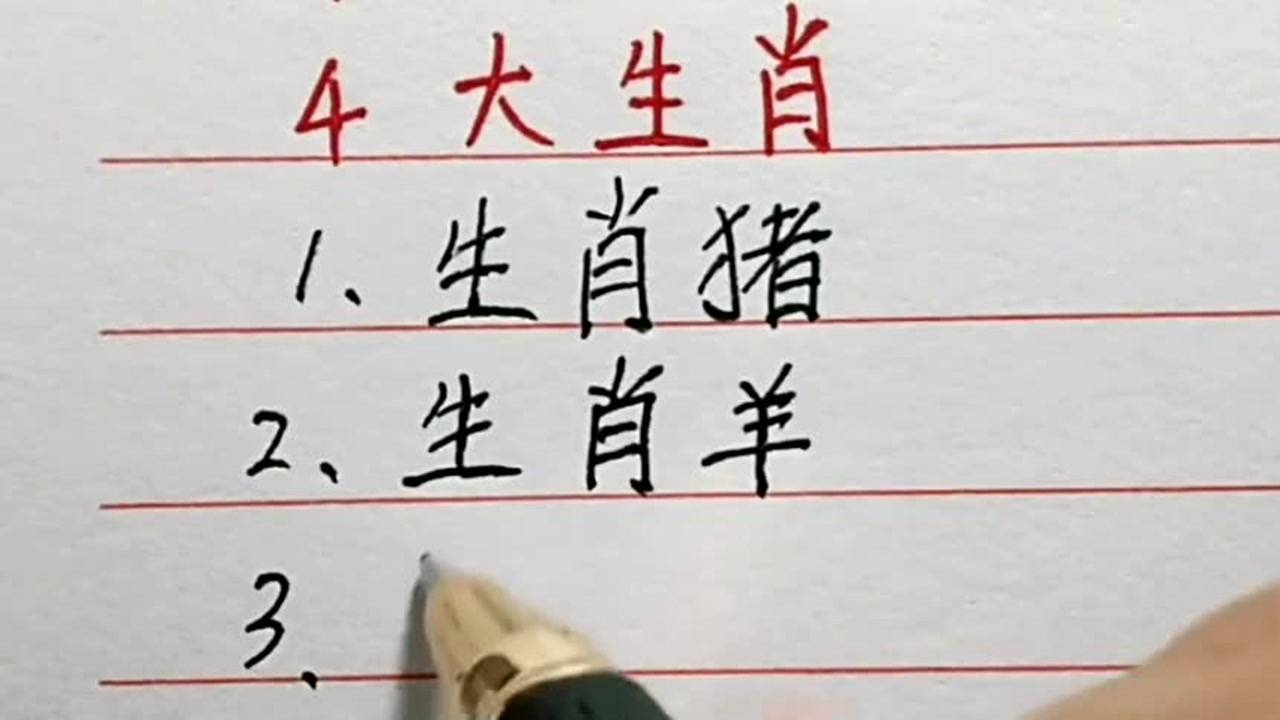 4大生肖
1、生肖猪
2、生肖羊
3、